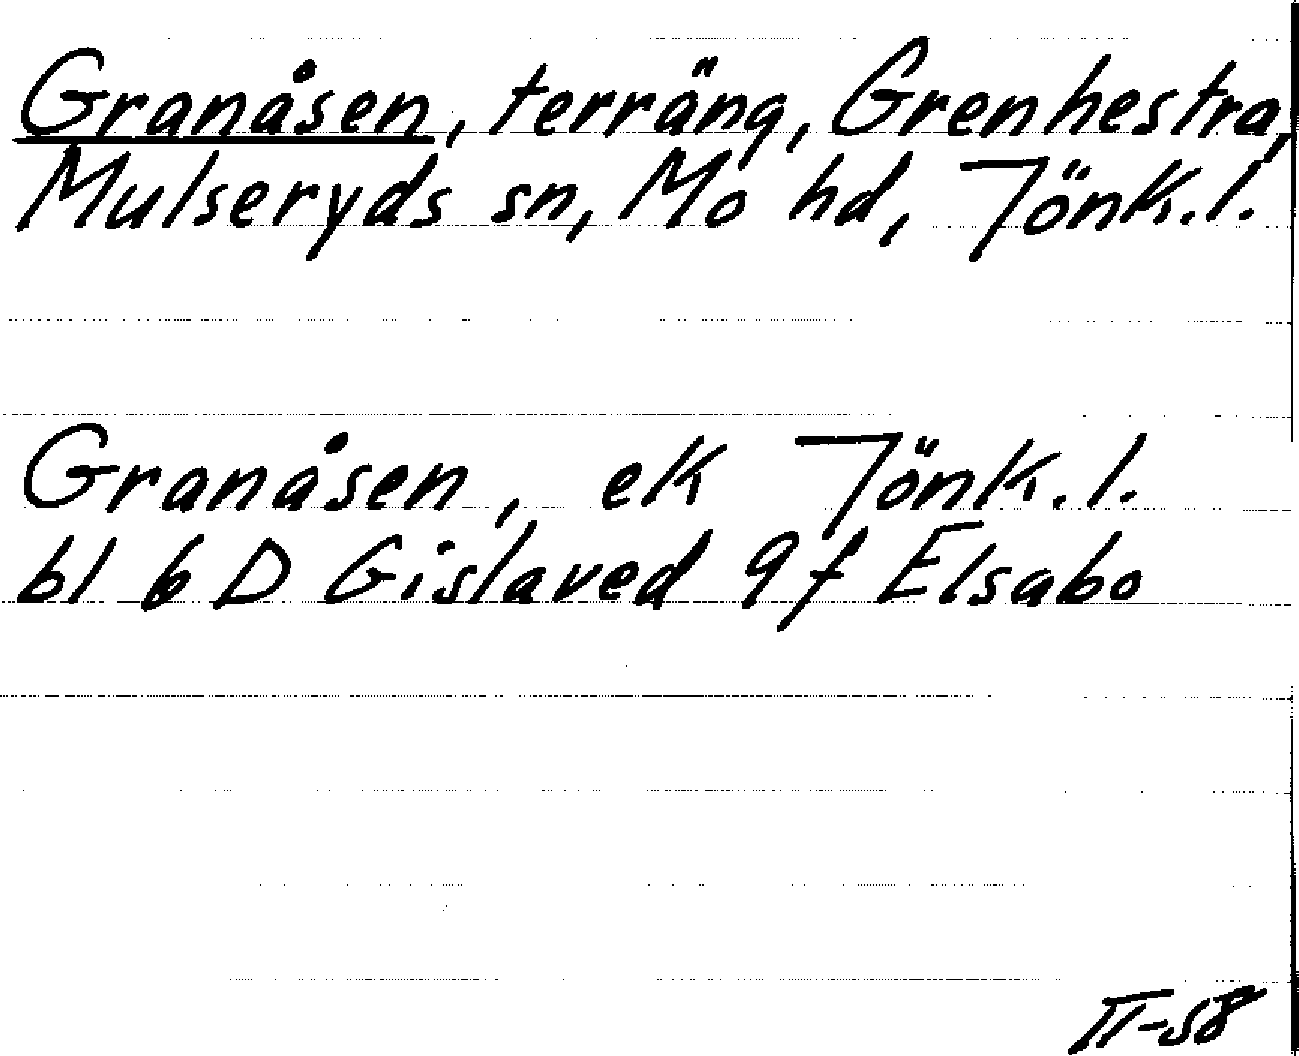 Granåsen, terräng, Grenhestra,
Mulseryds sn, Mo hd, Jönk.l.
Granåsen, ek Jönk.l.
bl 6 D Gislaved 9f Elsabo
II-58